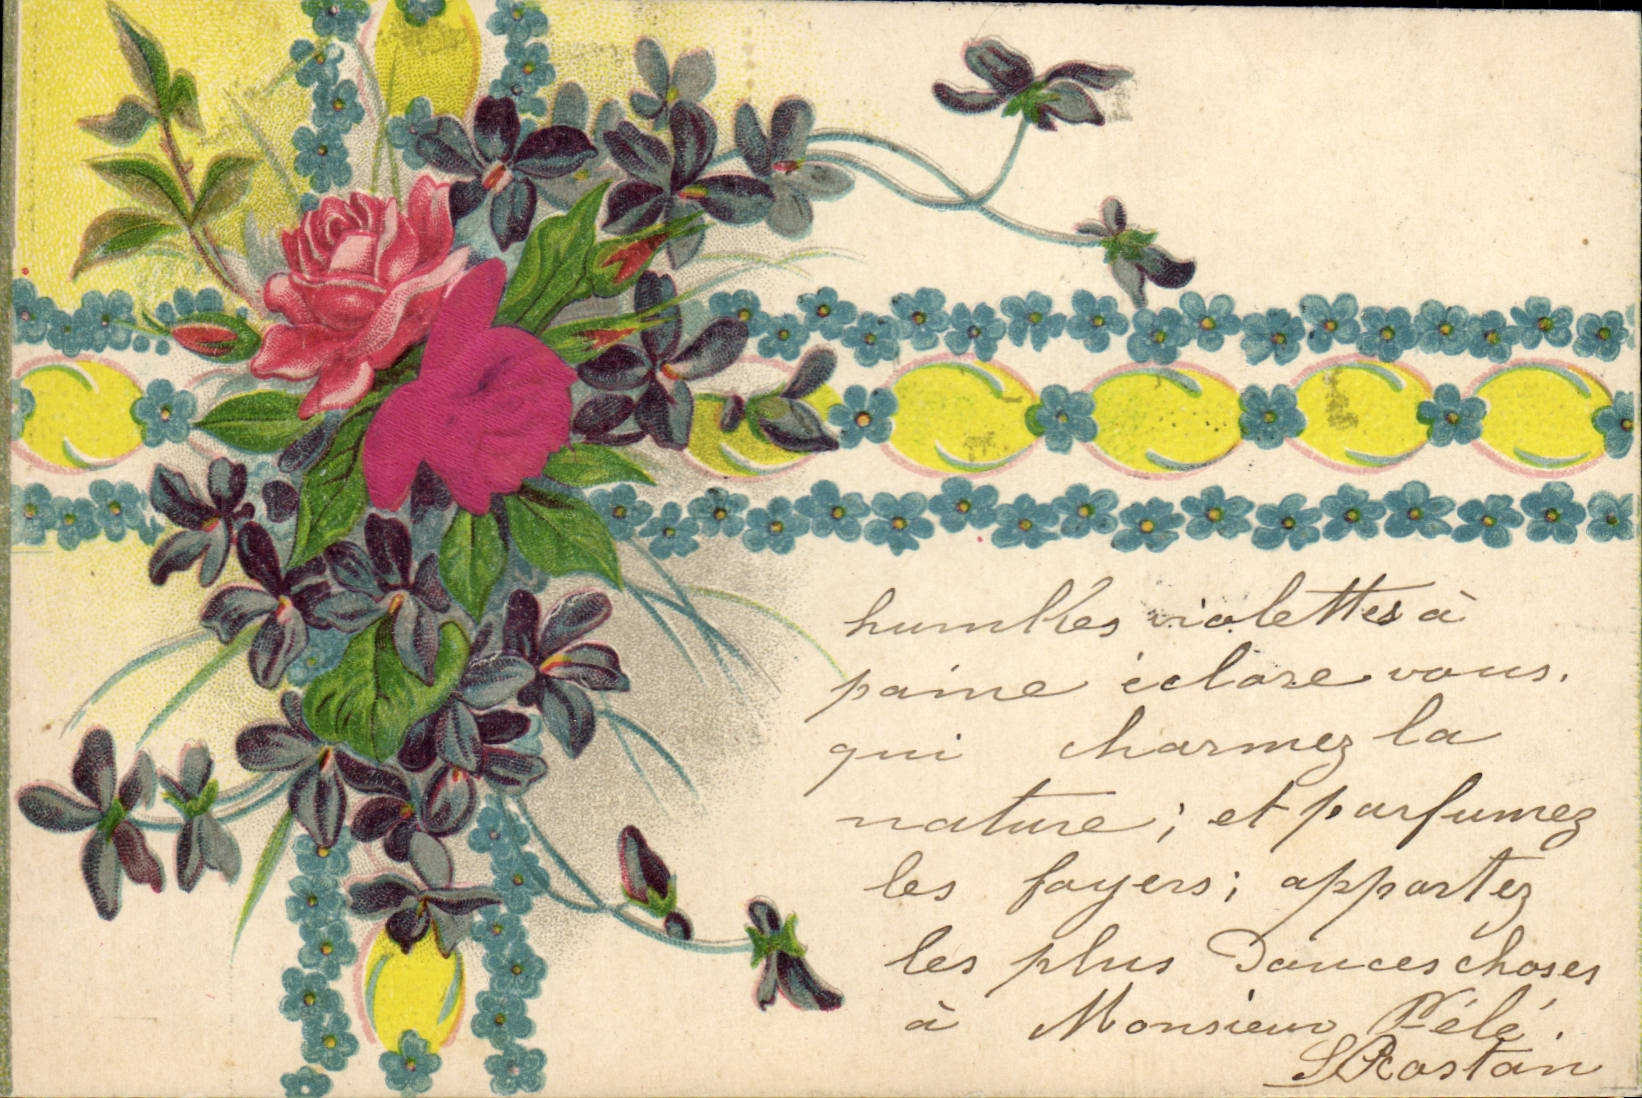 humbles violettes à
paine éclose vous.
qui charmez la
nature; et parfumez
les foyers; apportez
les plus Douces choses
à Monsieur Félé.
Rostan